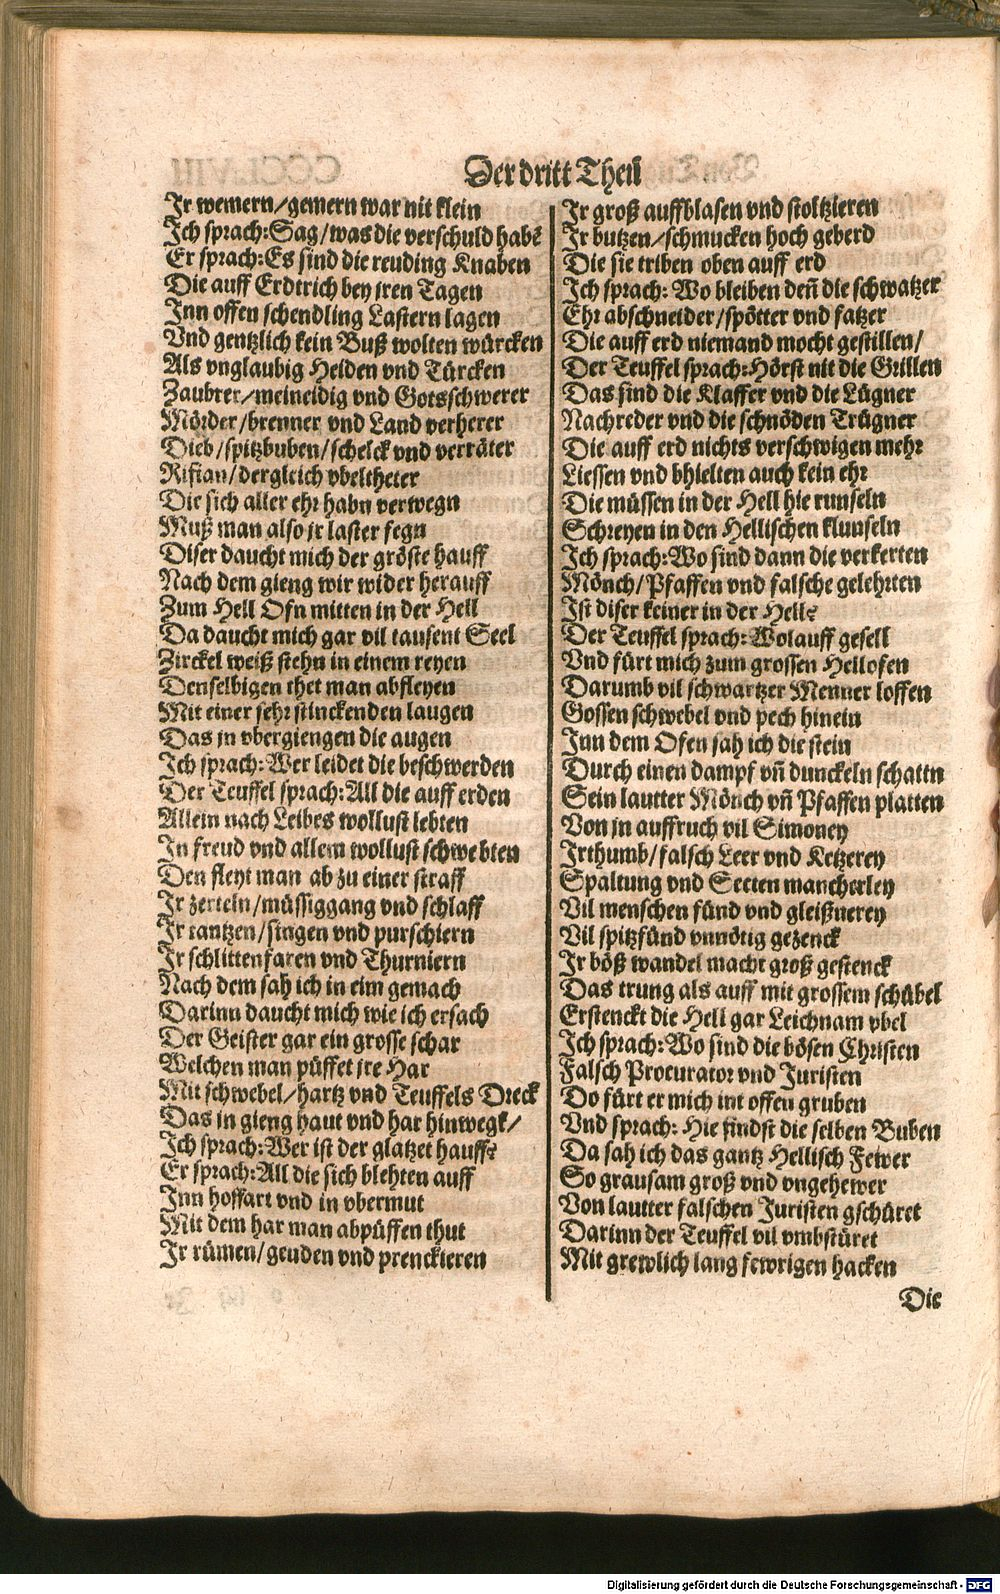 Der dritt Theil
Jr wemern/gemern war nit klein
Jch sprach:Sag/was die verschuld habē
Er sprach:Es sind die reuding Knaben
Die auff Erdtrich bey jren Tagen
Jnn offen schendling Lastern lagen
Vnd gentzlich kein Buß wolten würcken
Als vnglaubig Heiden vnd Türcken
Zaubrer/meineidig vnd Gotsschwerer
Mörder/brenner vnd Land verherer
Dieb/spitzbuben/schelck vnd verräter
Rifian/dergleich vbeltheter
Die sich aller ehr habn verwegn
Muß man also jr laster fegn
Diser daucht mich der gröste hauff
Nach dem gieng wir wider herauff
Zum Hell Ofn mitten in der Hell
Da daucht mich gar vil tausent Seel
Zirckel weiß stehn in einem reyen
Denselbigen thet man abfleyen
Mit einer sehr stinckenden laugen
Das jn vbergiengen die augen
Jch sprach:Wer leidet die beschwerden
Der Teuffel sprach:All die auff erden
Allein nach Leibes wollust lebten
Jn freud vnd allem wollust schwebten
Den fleyt man ab zu einer straff
Jr zerteln/müssiggang vnd schlaff
Jr tantzen/singen vnd purschiern
Jr schlittenfaren vnd Thurniern
Nach dem sah ich in eim gemach
Darinn daucht mich wie ich ersach
Der Geister gar ein grosse schar
Welchen man püffet jre Har
Mit schwebel/hartz vnd Teuffels Dreck
Das in gieng haut vnd har hinwegk/
Jch sprach:Wer ist der glatzet hauff?
Er sprach:All die sich blehten auff
Jnn hoffart vnd in vbermut
Mit dem har man abpüffen thut
Jr rümen/geuden vnd prenckieren
Jr groß auffblasen vnd stoltzieren
Jr butzen/schmucken hoch geberd
Die sie triben oben auff erd
Jch sprach: Wo bleiben deñ die schwatzer
Ehr abschneider/spötter vnd fatzer
Die auff erd niemand mocht gestillen/
Der Teuffel sprach:Hörst nit die Grillen
Das sind die Klaffer vnd die Lügner
Nachreder vnd die schnöden Trügner
Die auff erd nichts verschwigen mehr
Liessen vnd bhielten auch kein ehr
Die müssen in der Hell hie runseln
Schreyen in den Hellischen klunseln
Jch sprach:Wo sind dann die verkerten
Mönch/Pfaffen vnd falsche gelehrten
Jst diser keiner in der Hell?
Der Teuffel sprach:Wolauff gesell
Vnd fürt mich zum grossen Hellofen
Darumb vil schwartzer Menner loffen
Gossen schwebel vnd pech hinein
Jnn dem Ofen sah ich die stein
Durch einen dampf vñ dunckeln schattn
Sein lautter Mönch vñ Pfaffen platten
Von jn auffruch vil Simoney
Jrthumb/falsch Leer vnd Ketzerey
Spaltung vnd Secten mancherley
Vil menschen fünd vnd gleißnerey
Vil spitzfünd vnnötig gezenck
Jr böß wandel macht groß gestenck
Das trung als auff mit grossem schübel
Erstenckt die Hell gar Leichnam vbel
Jch sprach:Wo sind die bösen Christen
Falsch Procurator vnd Juristen
Do fürt er mich int offen gruben
Vnd sprach: Hie findst die selben Buben
Da sah ich das gantz Hellisch Fewer
So grausam groß vnd vngehewer
Von lautter falschen Juristen gschüret
Darinn der Teuffel vil vmbstüret
Mit grewlich lang fewrigen hacken
Die
Digitalisierung gefördert durch die Deutsche Forschungsgemeinschaft - DFG